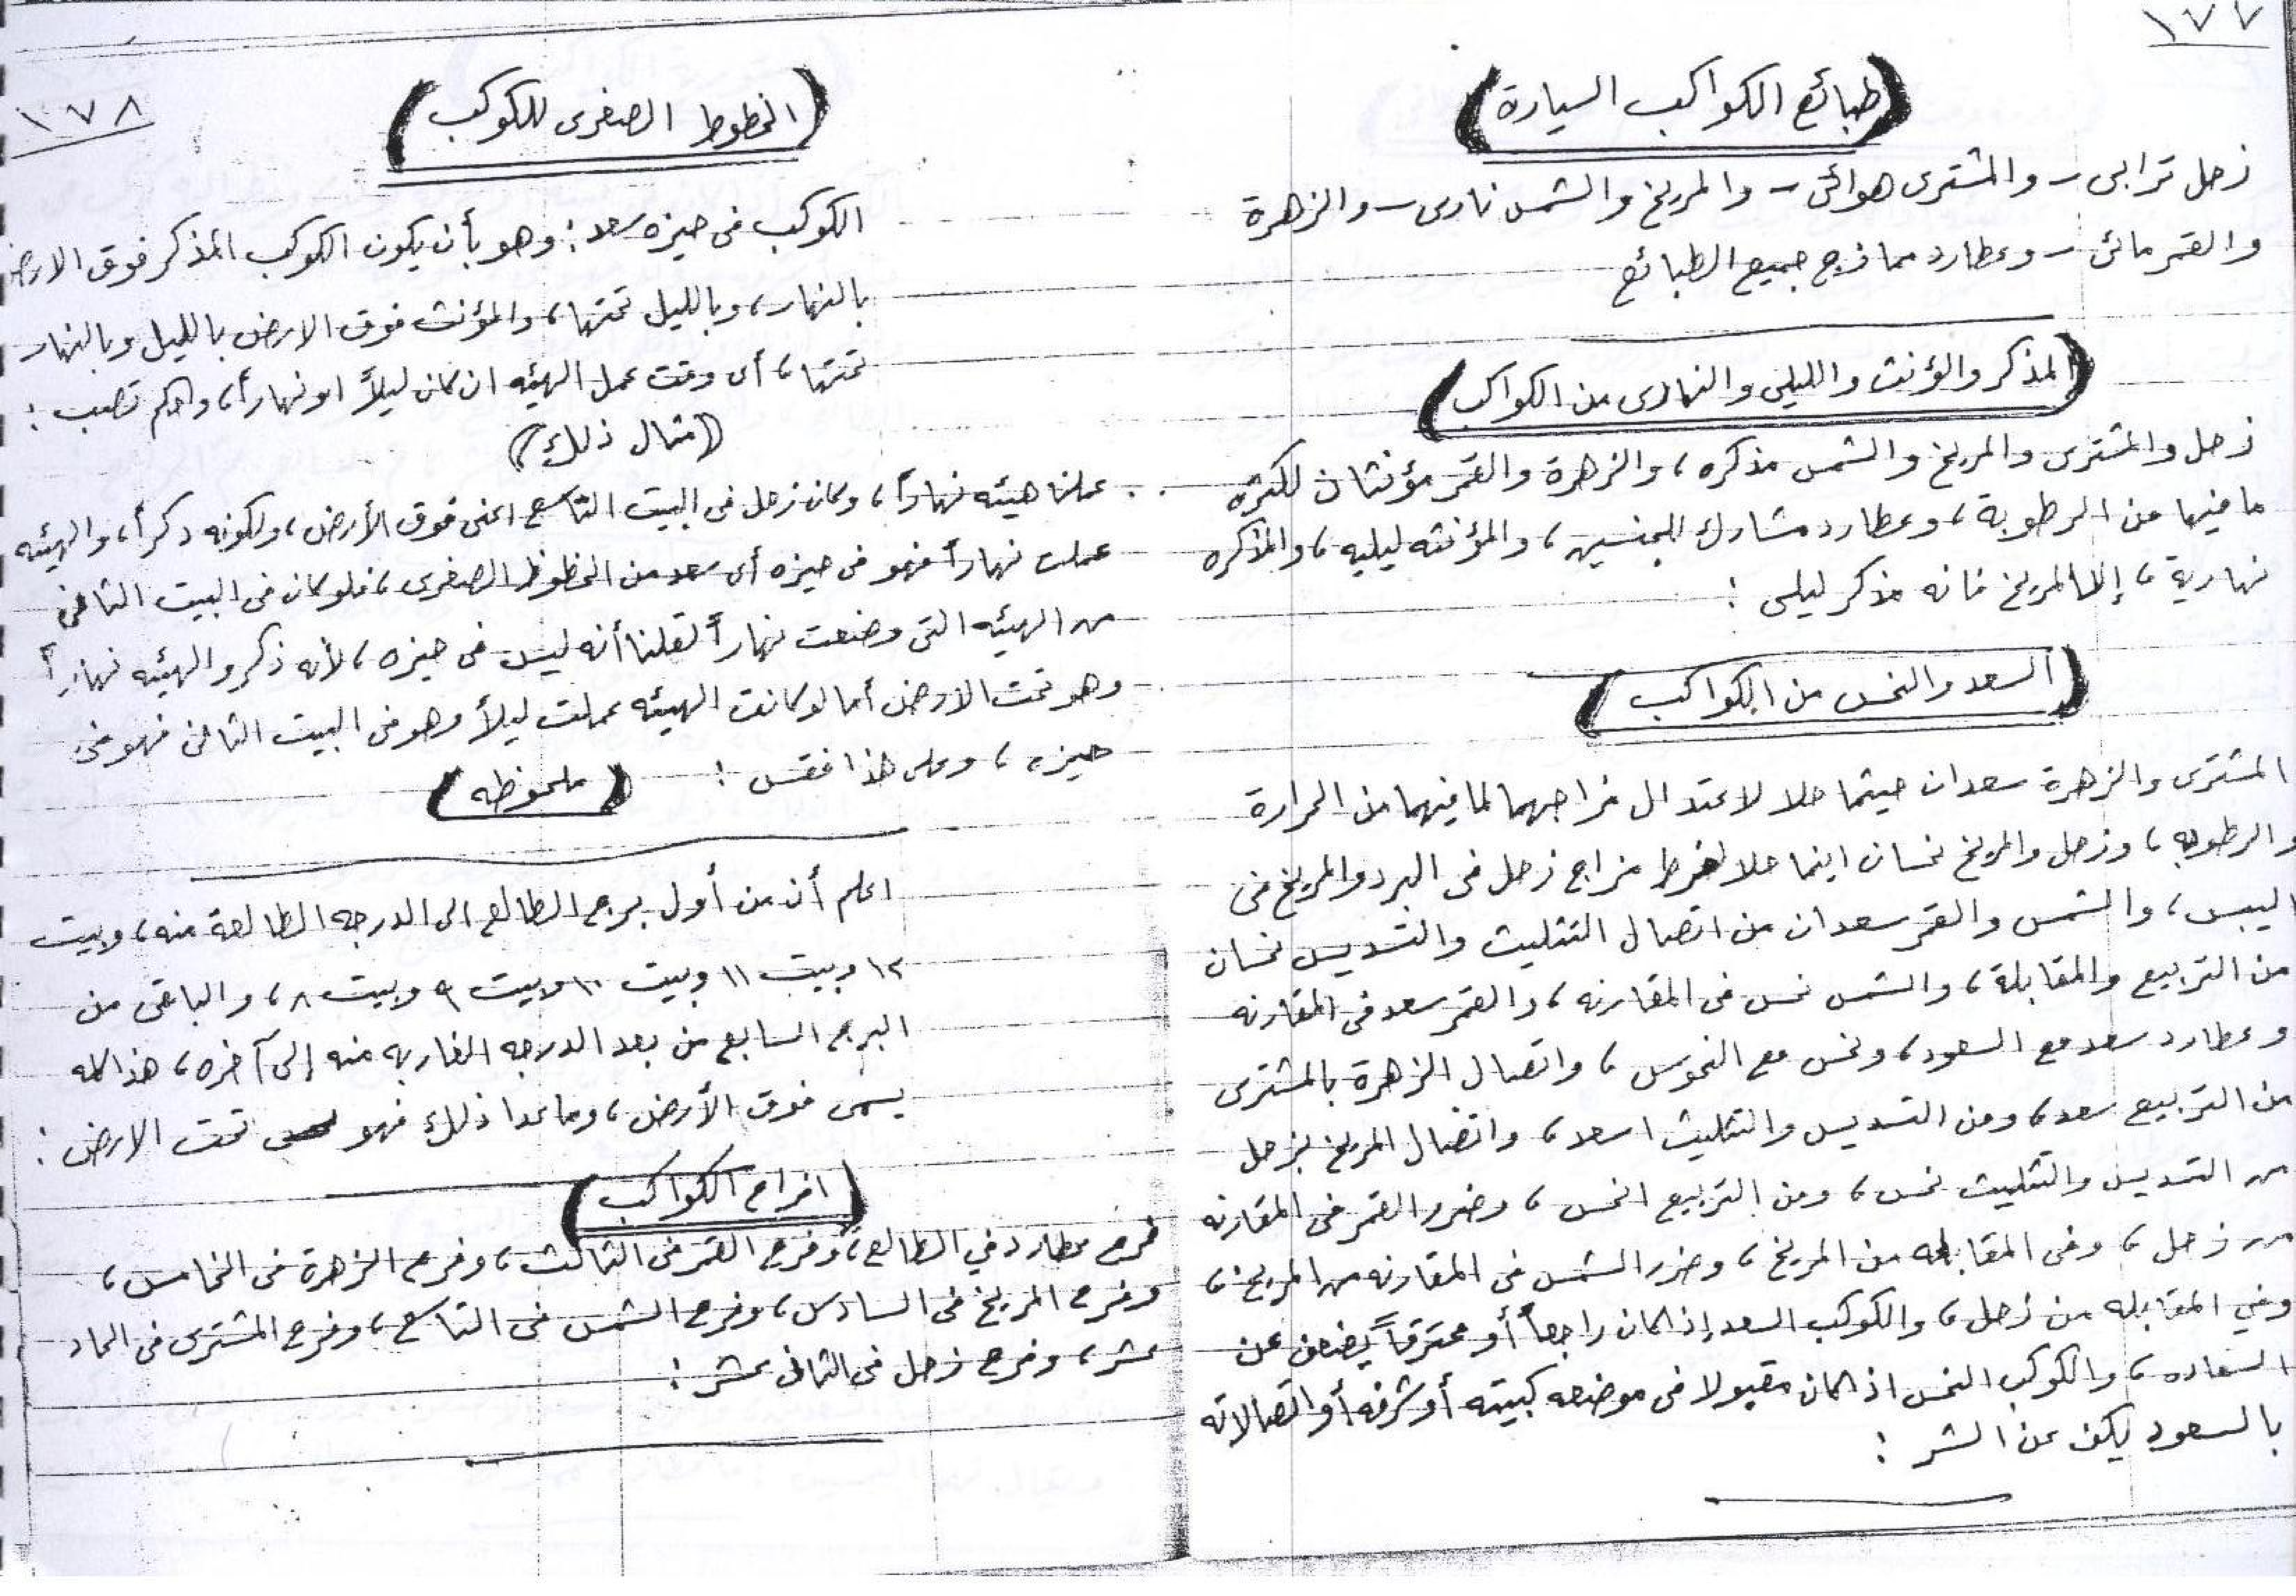 ١٧٧
(طبائع الكواكب السيارة)
زحل ترابى - والمشترى هوائى - والمريخ والشمس نارى - والزهرة
والقمر مائى - وعطارد ممازج جميع الطبائع
(المذكر والمؤنث والليلى والنهارى من الكواكب)
زحل والمشترى والمريخ والشمس مذكره، والزهرة والقمر مؤنثان لكثرة
ما فيها من الرطوبة، وعطارد مشارك للجنسين، والمؤنثه ليليه، والمذكره
نهارية، إلا المريخ فانه مذكر ليلى :
(السعد والنحس من الكواكب)
المشترى والزهرة سعدان حيثما حلا لاعتدال مزاجهما لما فيهما من الحرارة
والرطوبه، وزحل والمريخ نحسان اينما حلا لفرط مزاج زحل فى البرد والمريخ فى
اليبس، والشمس والقمر سعدان من اتصال التثليث والتسديس نحسان
من التربيع والمقابلة، والشمس نحس فى المقارنه، والقمر سعد فى المقارنه
وعطارد سعد مع السعود، ونحس مع النحوس، واتصال الزهرة بالمشترى
من التربيع سعد، ومن التسديس والتثليث اسعد، واتصال المريخ بزحل
من التسديس والتثليث نحس، ومن التربيع انحس، وضرر القمر فى المقارنه
من زحل، وفى المقابله من المريخ، وضرر الشمس فى المقارنه من المريخ،
وفي المقابله من زحل، والكوكب السعد إذا كان راجعاً أو محترقاً يضعف عن
السعاده، والكوكب النحس اذا كان مقبولا فى موضعه كبيته أو شرفه أو اتصالاته
بالسعود يكف عن الشر :
١٧٨
(الحظوظ الصغرى للكوكب)
الكوكب فى حيزه سعد : وهو بأن يكون الكوكب المذكر فوق الارض
بالنهار، وبالليل تحتها، والمؤنث فوق الارض بالليل وبالنهار
تحتها، أى وقت عمل الهيئه ان كان ليلاً او نهاراً، واحكم تصب :
(مثال ذلك)
عملنا هيئه نهاراً، وكان زحل فى البيت التاسع اعنى فوق الأرض، ولكونه ذكراً، والهيئه
عملت نهاراً فهو فى حيزه أى سعد من الحظوظ الصغرى، فلو كان فى البيت الثانى
من الهيئه التى وضعت نهاراً لقلنا أنه ليس فى حيزه، لأنه ذكر والهيئه نهاراً
وهو تحت الارض أما لو كانت الهيئه عملت ليلاً وهو فى البيت الثانى فهو فى
حيزه، وعلى هذا فقس : (ملحوظه)
اعلم أن من أول برج الطالع الى الدرجه الطالعة منه، وبيت
١٢ وبيت ١١ وبيت ١٠ وبيت ٩ وبيت ٨، والباقى من
البرج السابع من بعد الدرجه الغاربه منه إلى آخره، هذا كله
يسمى فوق الأرض، وما عدا ذلك فهو تحت الارض :
(افراح الكواكب)
فرح عطارد في الطالع، وفرح القمر فى الثالث، وفرح الزهرة فى الخامس،
وفرح المريخ فى السادس، وفرح الشمس فى التاسع، وفرح المشترى فى الحاد
عشر، وفرح زحل فى الثانى عشر :